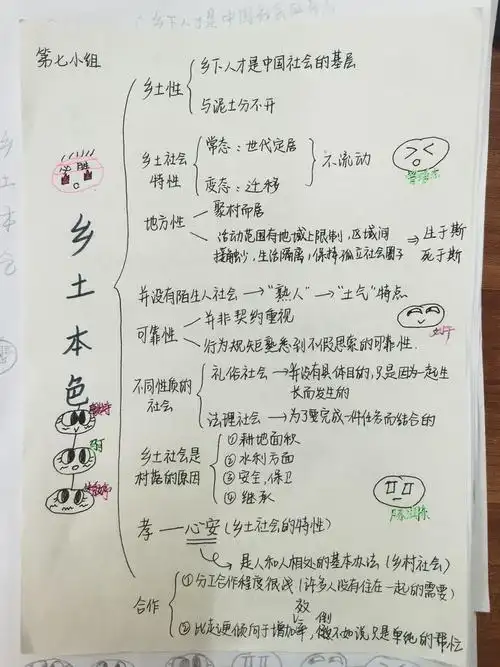 乡下人才是中国社会的基层
第七小组
乡土性
与泥土分不开
乡土社会特性
常态：世代定居
变态：迁移
不流动
必胜
乡土本色
地方性
聚村而居
活动范围有地域上限制，区域间
接触少，生活隔离，保持孤立社会圈子
⇒ 生于斯
死于斯
并没有陌生人社会→“熟人”→“土气”特点
可靠性
并非契约重视
行为规矩熟悉到不假思索的可靠性.
不同性质的社会
礼俗社会→并没有具体目的，只是因为一起生
长而发生的
法理社会→为了要完成一件任务而结合的
乡土社会是
村落的原因
①耕地面积
②水利方面
③安全，保卫
④继承
孝——心安（乡土社会的特性）
是人和人相处的基本办法（乡村社会）
合作
①分工合作程度很浅（许多人没有住在一起的需要）
放 倒
②比起更倾向于增加率，做不如说只是单纯的帮忙